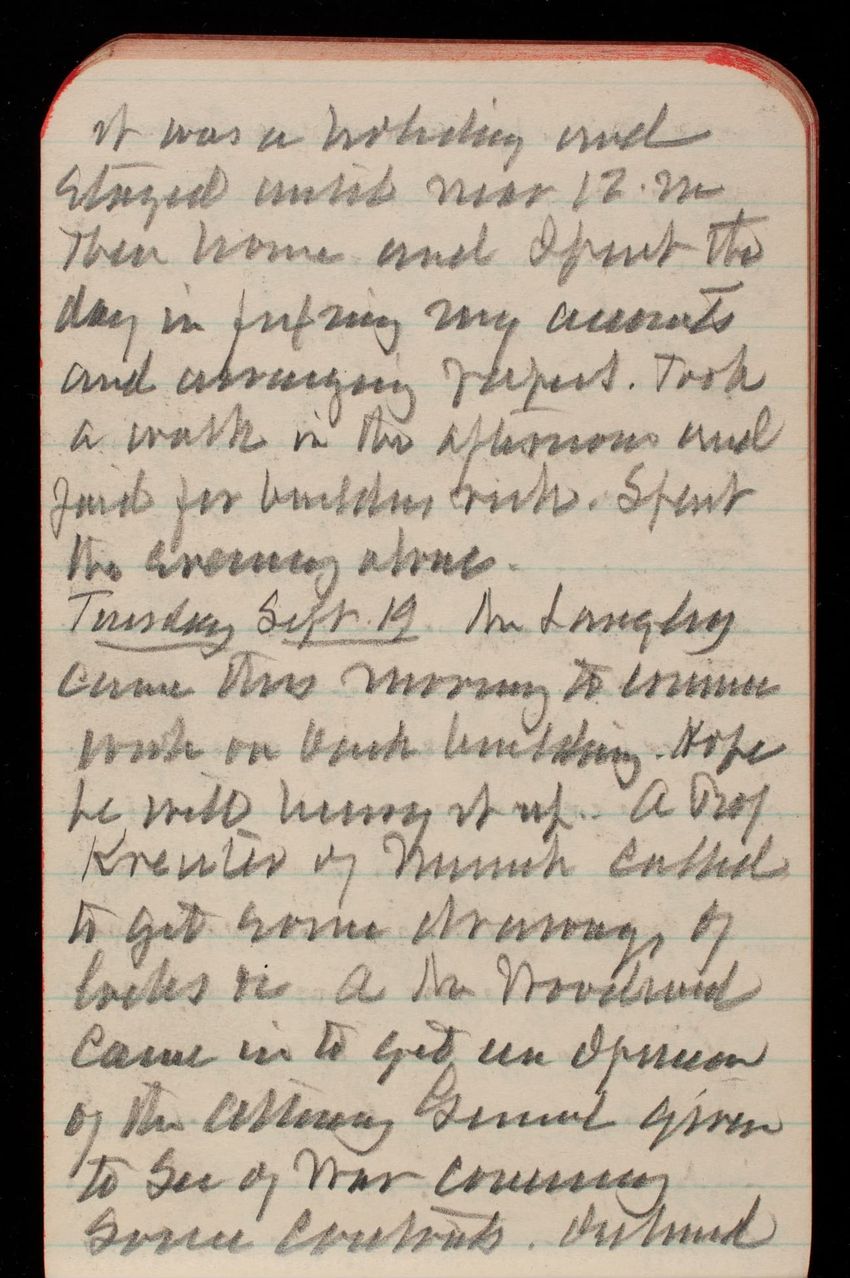 it was a holiday and
Stayed until near 12. m
Then home and Spent the
day in fixing my accounts
and arranging papers. Took
a walk in the afternoon and
paid for building brick. Spent
the evening alone.
Tuesday Sept. 19 Mr Langley
came this morning to commence
work on back building. Hope
he will hurry it up. A Prof
Kreuter of Munich called
to get some drawings of
locks &c A Mr Woodward
Came in to get an Opinion
of the Attorney General given
to Sec of War concerning
Some Contracts.